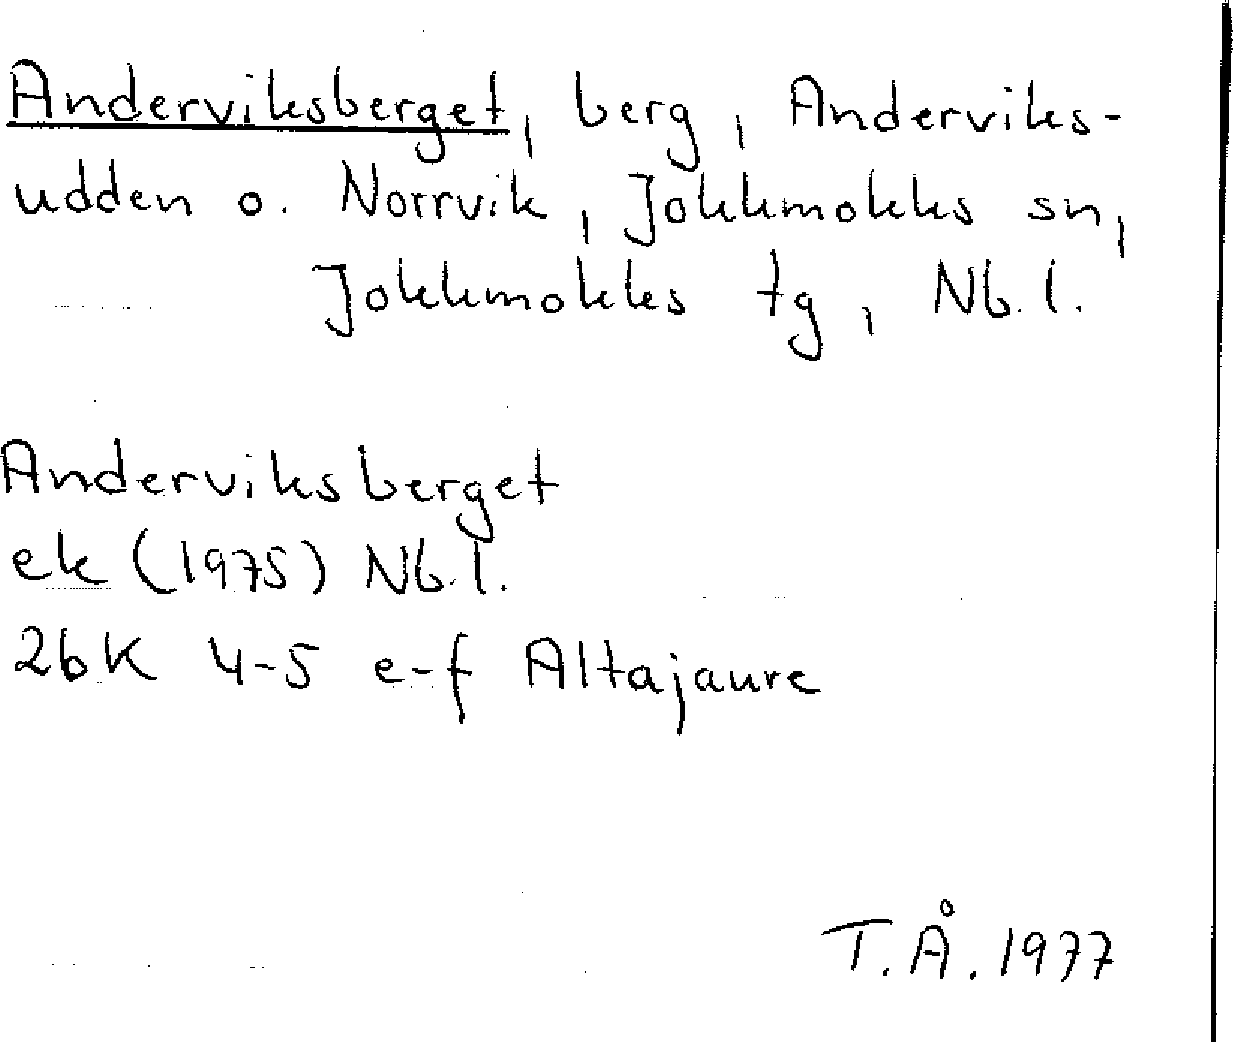 Anderviksberget, berg, Anderviks-
udden o. Norrvik, Jokkmokks sn,
Jokkmokks tg, Nb. l.
Anderviksberget
ek (1975) Nb. l.
26K 4-5 e-f Altajaure
T.Å. 1977